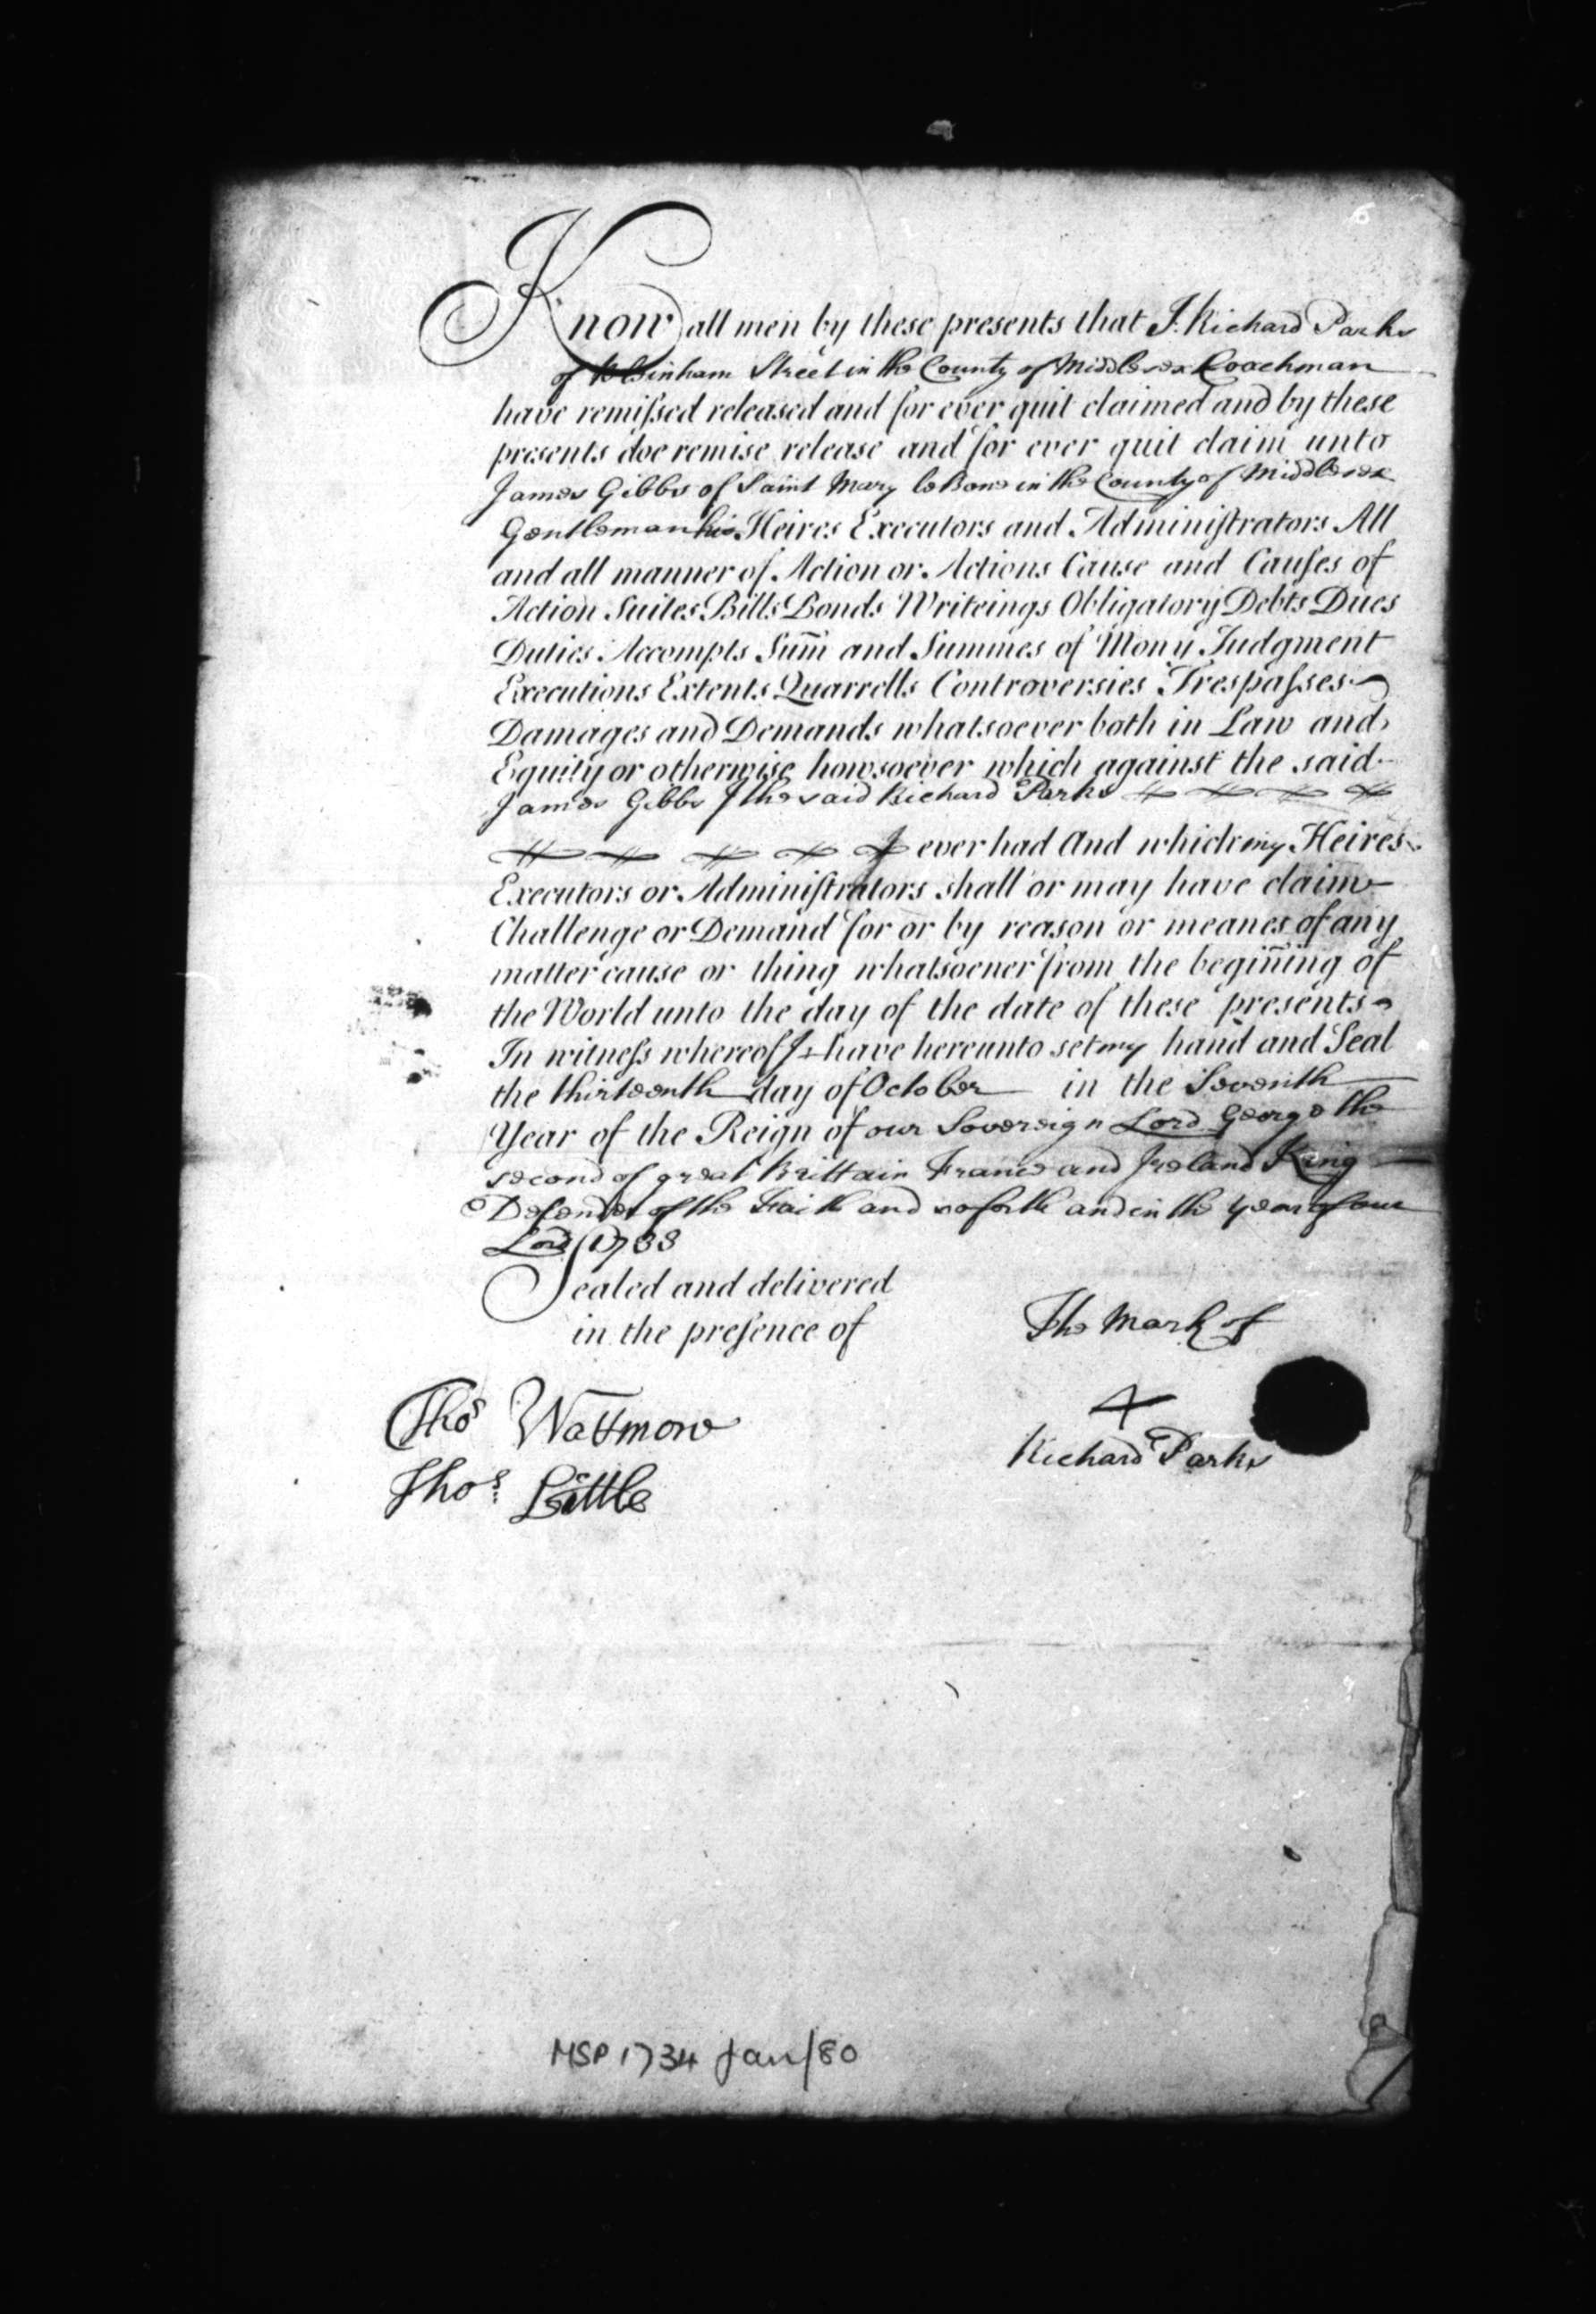 6
Know all men by these presents that I Richard Parks
of Blinham Street in the County of Middlesex Coachman
have remissed released and for ever quit claimed and by these
presents doe remise release and for ever quit claim unto
James Gibbs of Saint Mary le Bone in the County of Middlesex
Gentleman his Heires Executors and Administrators All
and all manner of Action or Actions Cause and Causes of
Action Suites Bills Bonds Writeings Obligatory Debts Dues
Duties Accompts Sum̃ and Summes of Mony Judgment
Executions Extents Quarrells Controversies Trespasses
Damages and Demands whatsoever both in Law and
Equity or otherwise howsoever which against the said
James Gibbs I the said Richard Parks
I ever had And which my Heires
Executors or Administrators shall or may have claim
Challenge or Demand for or by reason or meanes of any
matter cause or thing whatsoener from the begiñing of
the World unto the day of the date of these presents
In witness whereof I have hereunto set my hand and Seal
the thirteenth day of October in the Seventh
Year of the Reign of our Sovereign Lord George the
second of great Brittain France and Ireland King
Defender of the Faith and so forth and in the year of our
Lord 1733
Sealed and delivered
in the presence of
The Mark of
Thos Wattmore
Richard Parks
Thos Little
MSP 1734 Jan/80